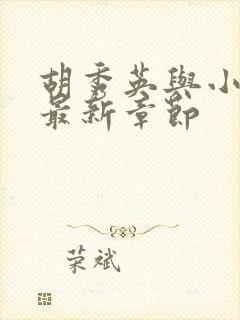 胡秀英與小
最新章節
荣斌